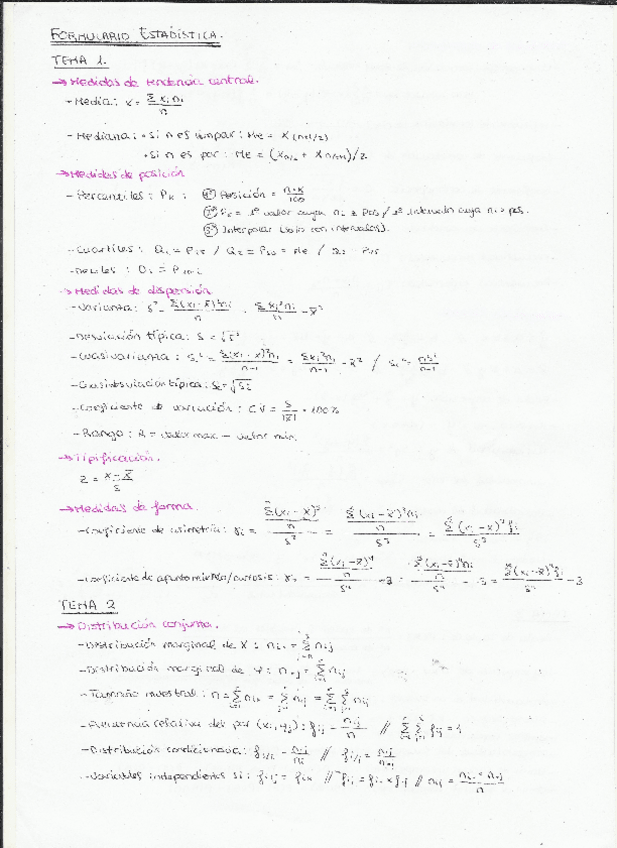 FORMULARIO ESTADÍSTICA.
TEMA 1.
→ Medidas de tendencia central.
- Media: x = Σxᵢnᵢ/n
- Mediana: • Si n es impar: Me = X(n+1/2)
• Si n es par: Me = (Xn/2 + Xn/2+1)/2
→ Medidas de posición
- Percentiles: Pₖ: 1º Posición = n·k/100
2º Pₖ = 1º valor cuya Nᵢ ≥ pos / 1º intervalo cuya Nᵢ > pos.
3º Interpolar (solo con intervalos).
- Cuartiles: Q₁ = P₂₅ / Q₂ = P₅₀ = Me / Q₃ = P₇₅
- Deciles: Dᵢ = P₁₀·ᵢ
→ Medidas de dispersión
- Varianza: s² = Σ(xᵢ - x̄)²nᵢ/n = Σxᵢ²nᵢ/n - x̄²
- Desviación típica: s = √s²
- Cuasivarianza: sc² = Σ(xᵢ - x̄)²nᵢ/n-1 = Σxᵢ²nᵢ/n-1 - x̄² / sc² = n·s²/n-1
- Cuasidesviación típica: sc = √sc²
- Coeficiente de variación: CV = s/|x̄| · 100%
- Rango: R = valor max - valor min.
→ Tipificación.
z = x - x̄/s
→ Medidas de forma.
- Coeficiente de asimetría: γ₁ = Σ(xᵢ - x̄)³/n/s³ = Σ(xᵢ - x̄)³nᵢ/n/s³ = Σ(xᵢ - x̄)³fᵢ/s³
- Coeficiente de apuntamiento/curtosis: γ₂ = Σ(xᵢ - x̄)⁴/n/s⁴ - 3 = Σ(xᵢ - x̄)⁴nᵢ/n/s⁴ - 3 = Σ(xᵢ - x̄)⁴fᵢ/s⁴ - 3
TEMA 2
→ Distribución conjunta.
- Distribución marginal de X: nᵢ. = Σnᵢⱼ
- Distribución marginal de Y: n.ⱼ = Σnᵢⱼ
- Tamaño muestral: n = Σnᵢ. = Σn.ⱼ = ΣΣnᵢⱼ
- Frecuencia relativa del par (xᵢ, yⱼ): fᵢⱼ = nᵢⱼ/n // ΣΣfᵢⱼ = 1
- Distribución condicionada: // 
- Variables independientes si: // fᵢⱼ = fᵢ. × f.ⱼ // nᵢⱼ = nᵢ. × n.ⱼ/n